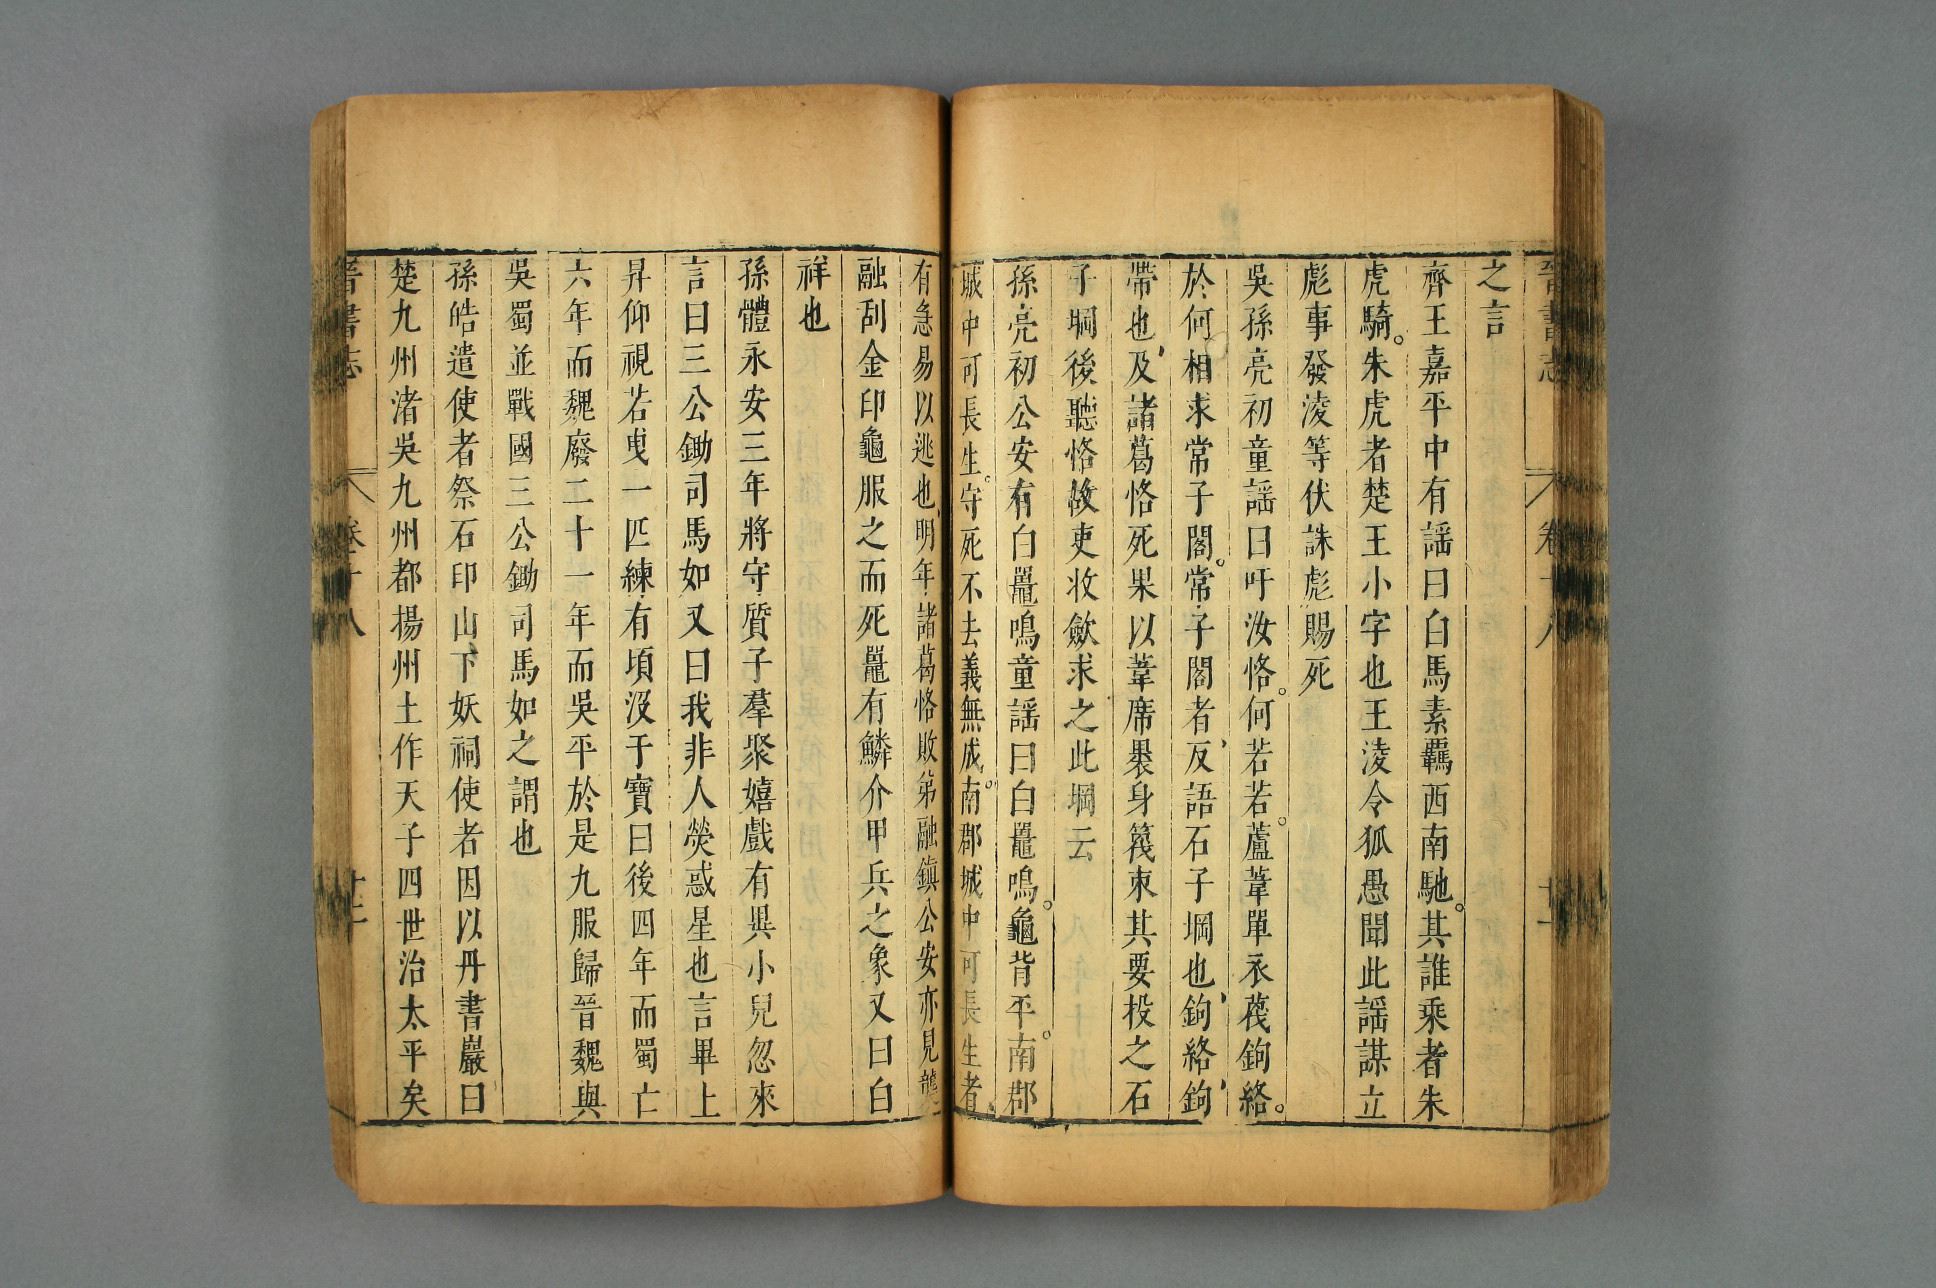 晉書志 卷十八
之言
齊王嘉平中有謡曰白馬素羈西南馳。其誰乘者朱
虎騎。朱虎者楚王小字也王淩令狐愚聞此謡謀立
彪事發淩等伏誅彪賜死
吳孫亮初童謡曰吁汝恪。何若若。蘆葦單衣篾鉤絡。
於何相求常子閣。常子閣者反語石子堈也鉤絡鉤
帶也及諸葛恪死果以葦席褁身篾束其要投之石
子堈後聽恪故吏收斂求之此堈云
孫亮初公安有白鼉鳴童謡曰白鼉鳴。龜背平。南郡
城中可長生。守死不去義無成。南郡城中可長生者
有急易以逃也明年諸葛恪敗弟融鎮公安亦見襲
融刮金印龜服之而死鼉有鱗介甲兵之象又曰白
祥也
孫體永安三年將守質子羣聚嬉戲有異小兒忽來
言曰三公鋤司馬如又曰我非人熒惑星也言畢上
昇仰視若曳一匹練有頃沒于寶曰後四年而蜀亡
六年而魏廢二十一年而吳平於是九服歸晉魏與
吳蜀並戰國三公鋤司馬如之謂也
孫皓遣使者祭石印山下妖祠使者因以丹書巖曰
楚九州渚吳九州都揚州士作天子四世治太平矣
晉書志 卷十八 廿二